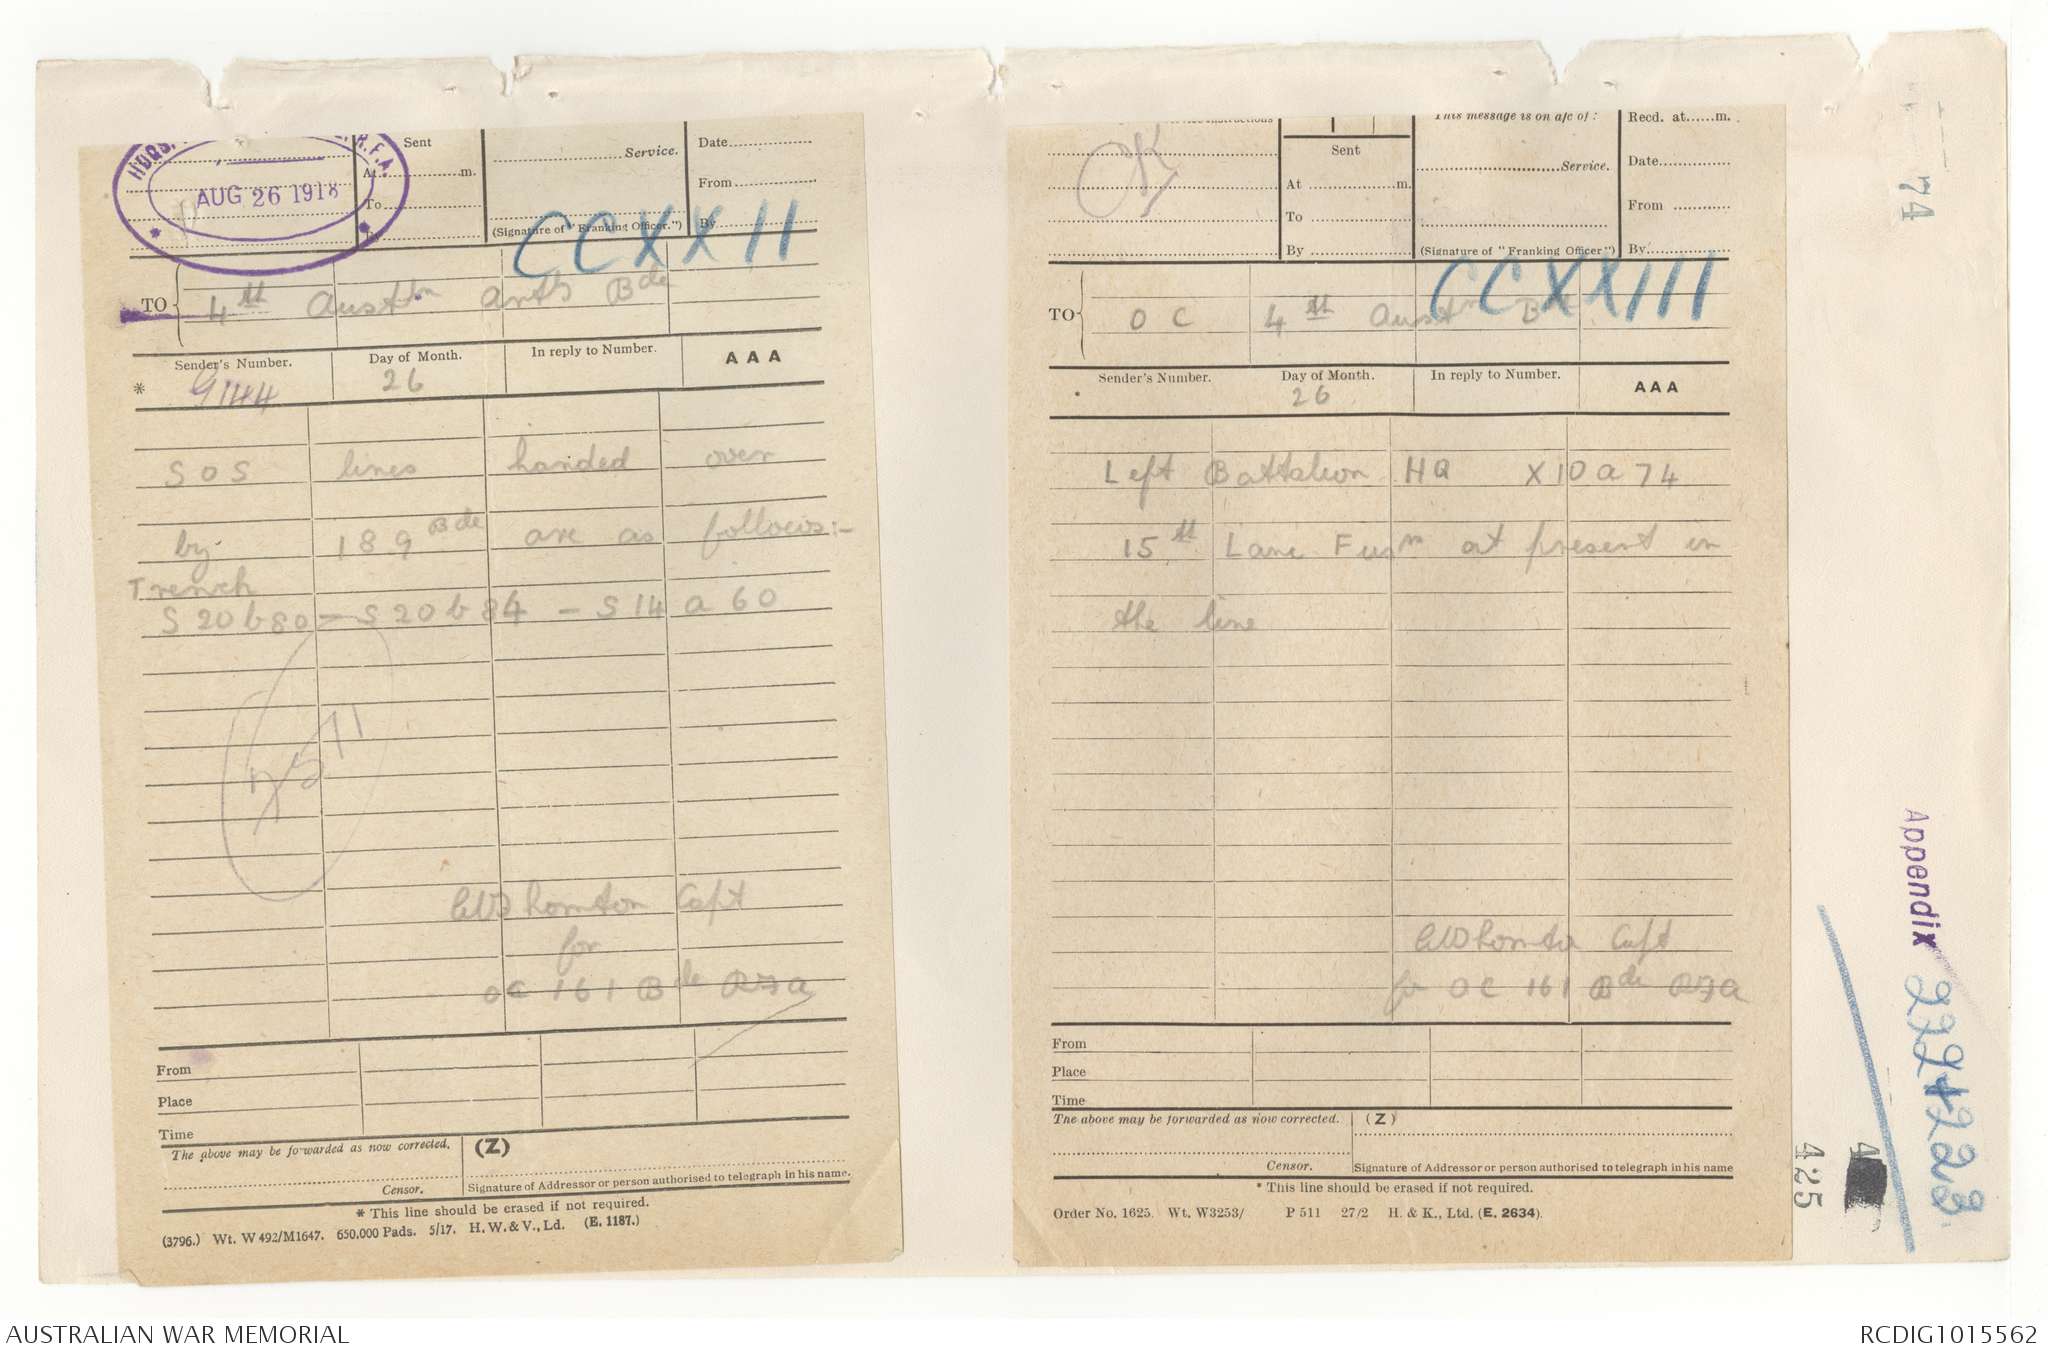 HDQS. R.F.A.
AUG 26 1918
Sent
At ........ m.
To
By
Service.
(Signature of "Franking Officer.")
Date
From
By
CCXXII
TO 4th Austln Arty Bde
Sender's Number.
Day of Month.
In reply to Number.
AAA
* G144
26
SOS lines handed over
by 189 Bde are as follows:-
Trench
S20b80 - S20b84 - S14a60
Capt
for
OC 161 Bde RFA
From
Place
Time
The above may be forwarded as now corrected.
(Z)
Censor.
Signature of Addressor or person authorised to telegraph in his name.
* This line should be erased if not required.
(3796.) Wt. W492/M1647. 650,000 Pads. 5/17. H. W. & V., Ld. (E. 1187.)
OK
Sent
At ........ m.
To
By
This message is on a/c of :
Service.
(Signature of "Franking Officer")
Recd. at ...... m.
Date
From
By
CCXXIII
TO OC 4th Austn Bde
Sender's Number.
Day of Month.
In reply to Number.
AAA
26
Left Battalion HQ X10a74
15th Lanc Fusrs at present in
the line
Capt
for OC 161 Bde RFA
From
Place
Time
The above may be forwarded as now corrected.
(Z)
Censor.
Signature of Addressor or person authorised to telegraph in his name
* This line should be erased if not required.
Order No. 1625. Wt. W3253/ P 511 27/2 H. & K., Ltd. (E. 2634).
74
Appendix 222+223.
4
425
AUSTRALIAN WAR MEMORIAL
RCDIG1015562